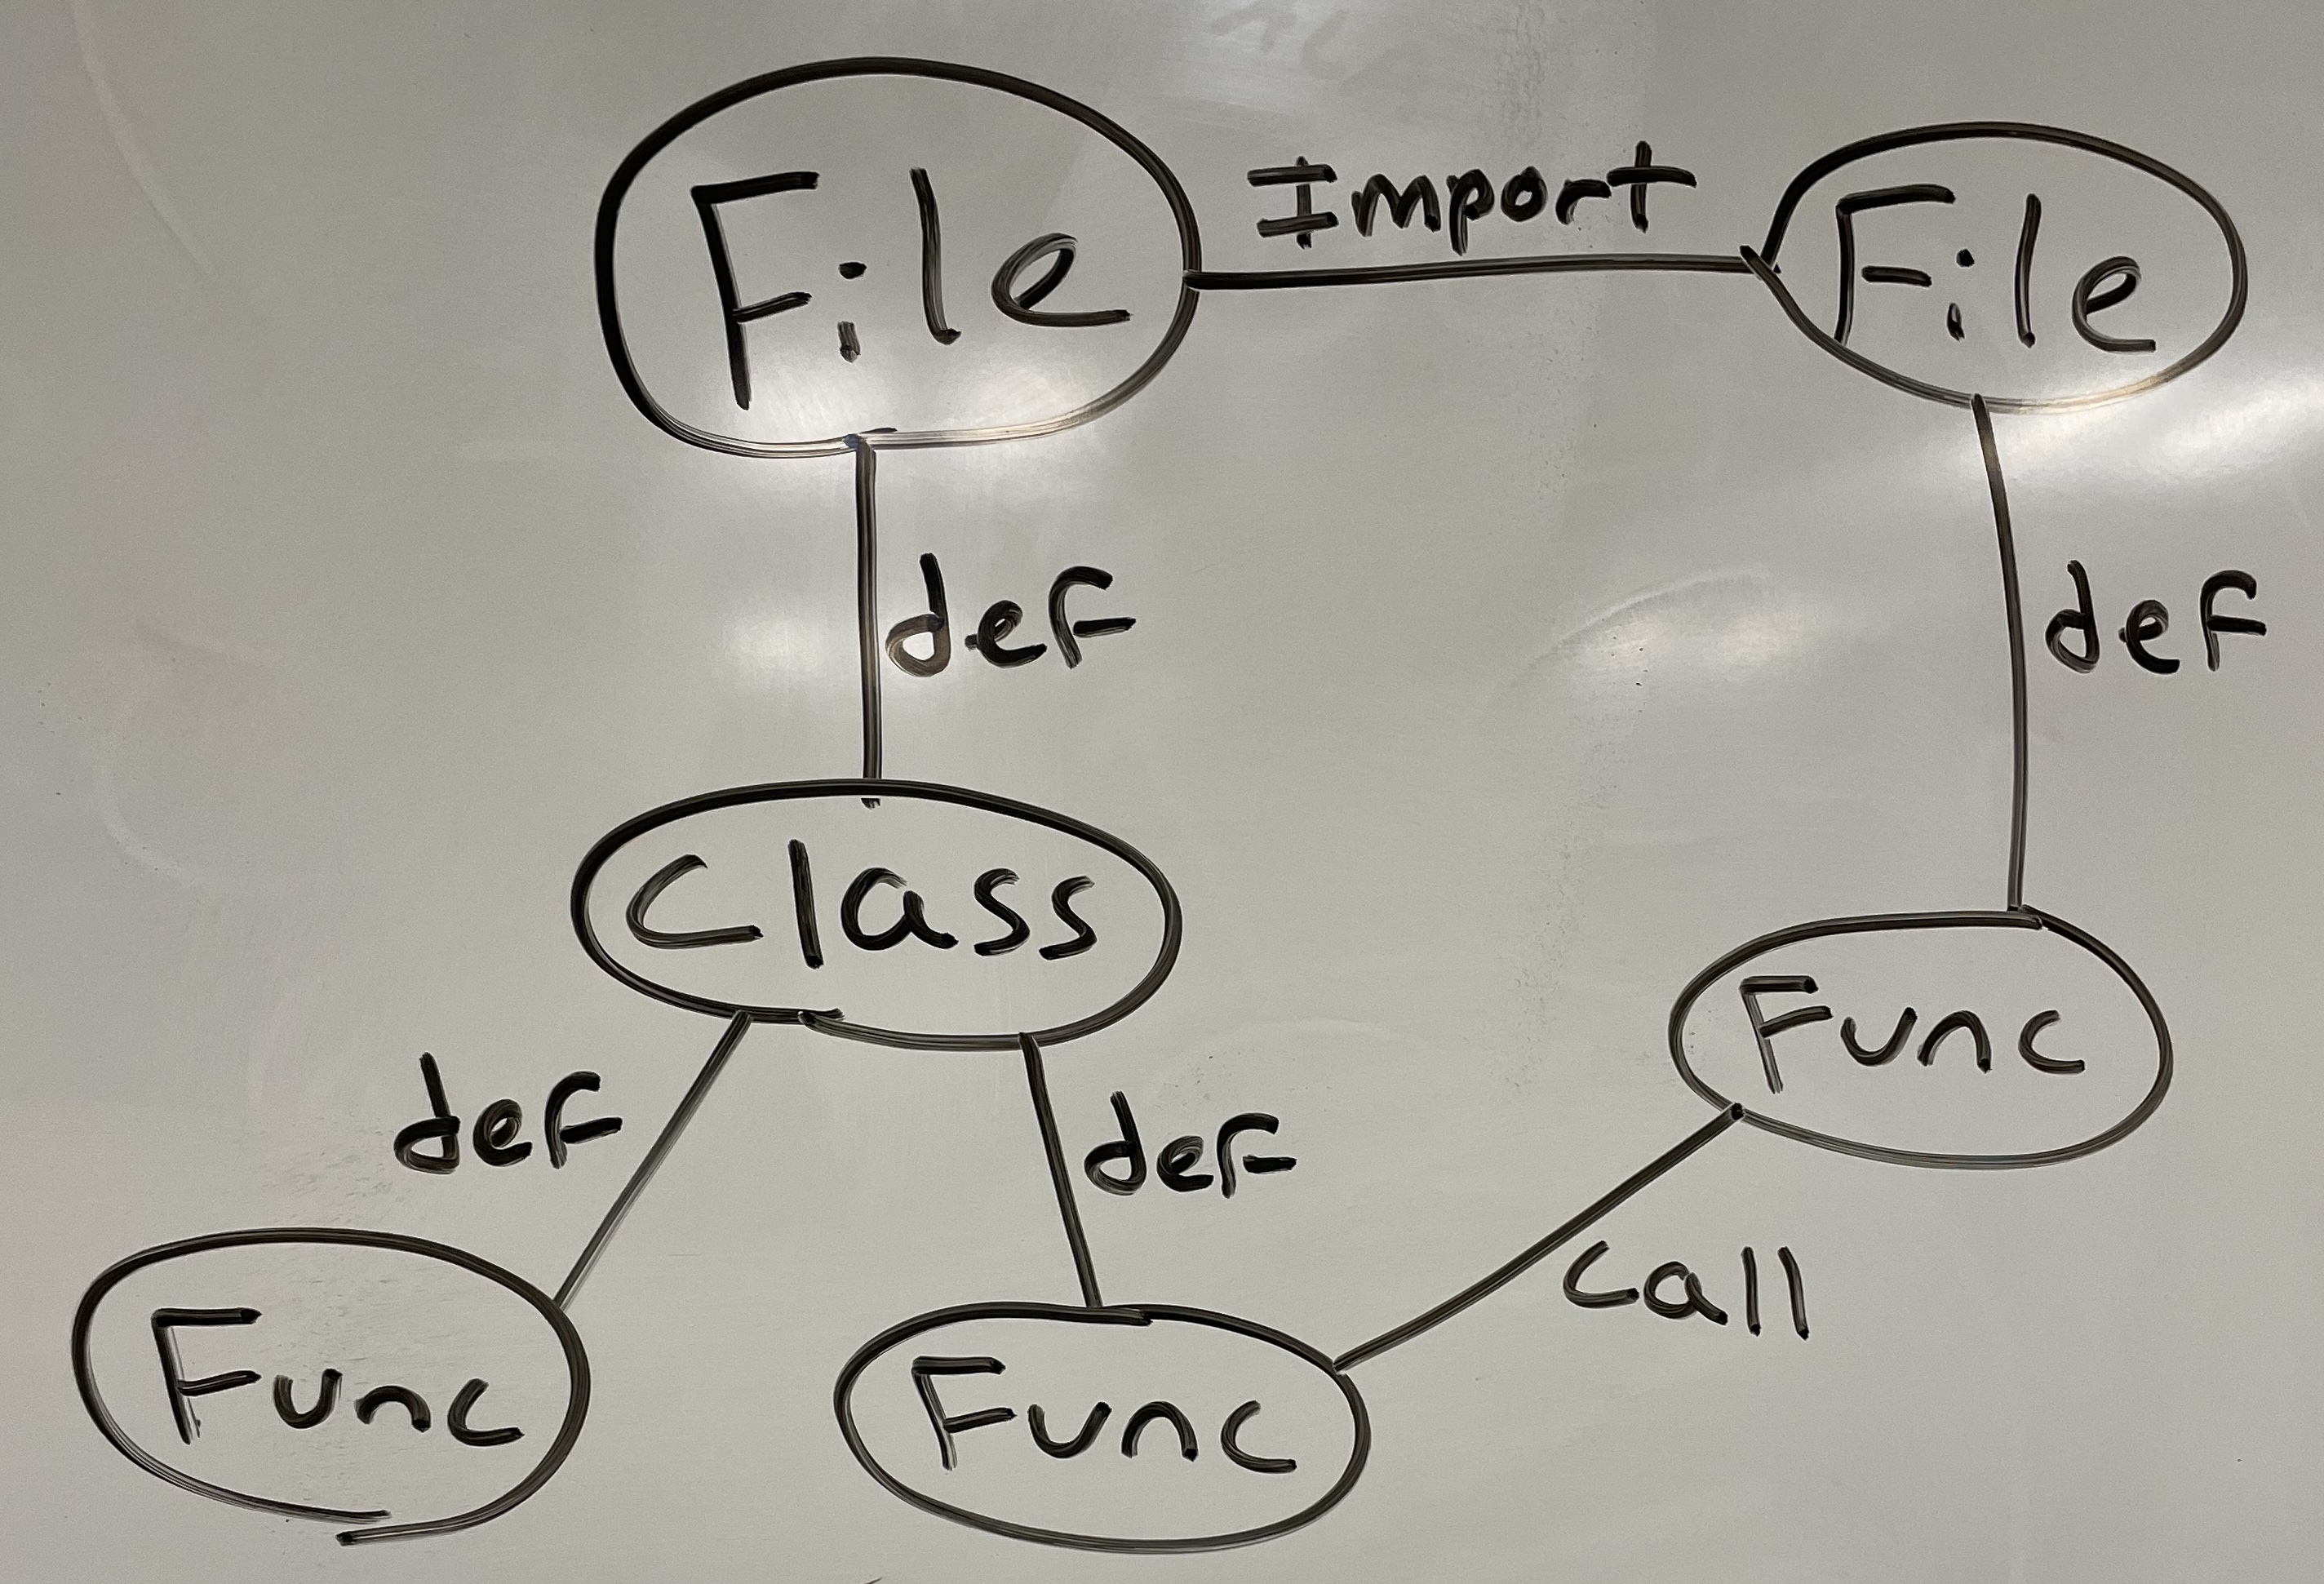 File
Import
File
def
def
Class
Func
def
def
call
Func
Func